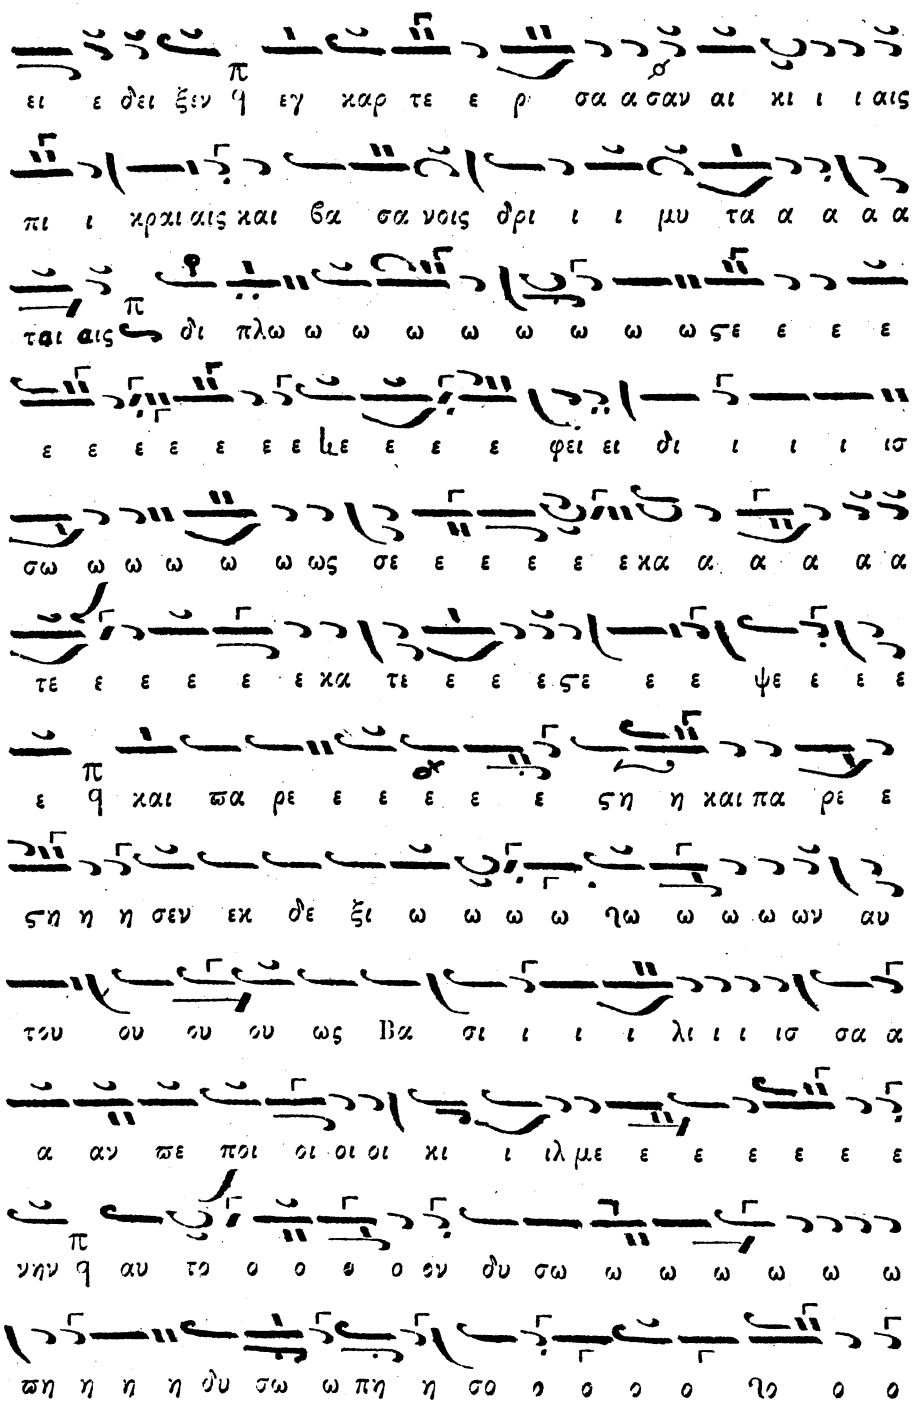 ει ε δει ξεν π ϥ εγ καρ τε ε ρ σα α σαν αι κι ι ι αις
πι ι κραι αις και βα σα νοις δρι ι ι μυ τα α α α α
ται αις π δι πλω ω ω ω ω ω ω ω ω ϛε ε ε ε
ε ε ε ε ε ε ε κε ε ε ε φει ει δι ι ι ι ισ
σω ω ω ω ω ω ως σε ε ε ε ε ε κα α α α α α
τε ε ε ε ε ε κα τε ε ε ε ϛε ε ε ψε ε ε ε
ε π ϥ και ϖα ρε ε ε ε ε ε ϛη η και πα ρε ε
ϛη η η σεν εκ δε ξι ω ω ω ω ω ω ω ων αυ
του ου ου ου ως Βα σι ι ι ι λι ι ι ισ σα α
α αν ϖε ποι οι οι οι κι ι ιλ με ε ε ε ε ε ε
νην π ϥ αυ το ο ο ο ο ον δυ σω ω ω ω ω ω ω
ϖη η η η δυ σω ω πη η σο ο ο ο ο ο ο